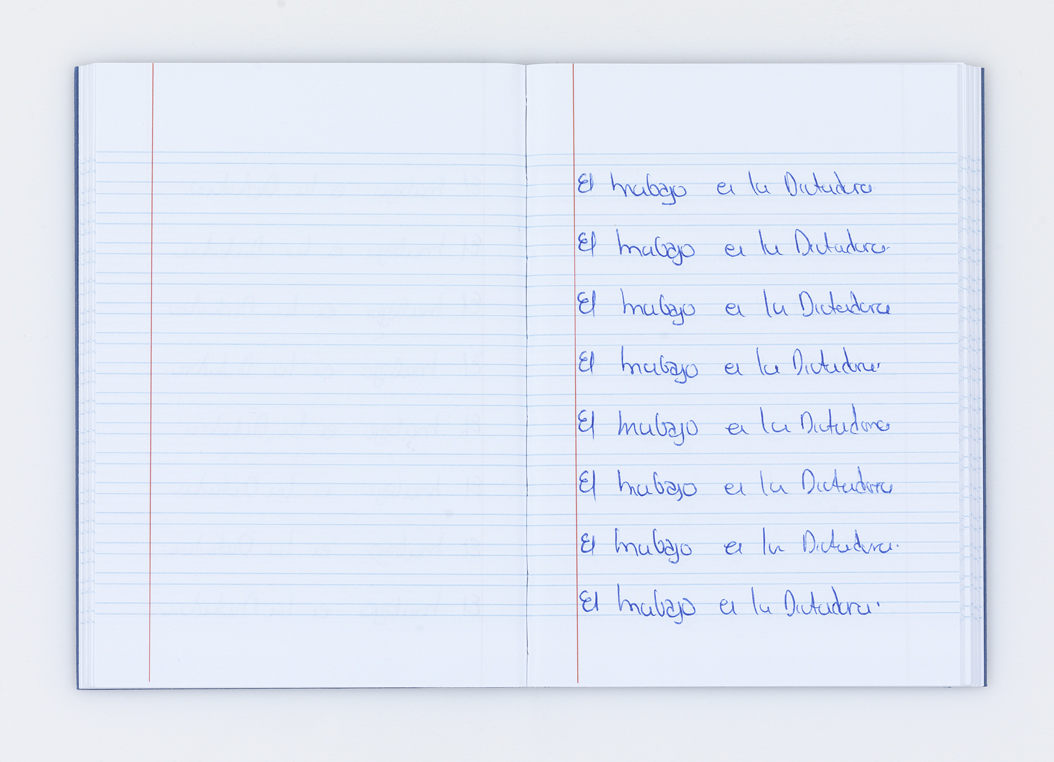 El trabajo es la Dictadura
El trabajo es la Dictadura.
El trabajo es la Dictadura
El trabajo es la Dictadura.
El trabajo es la Dictadura
El trabajo es la Dictadura
El trabajo es la Dictadura.
El trabajo es la Dictadura.